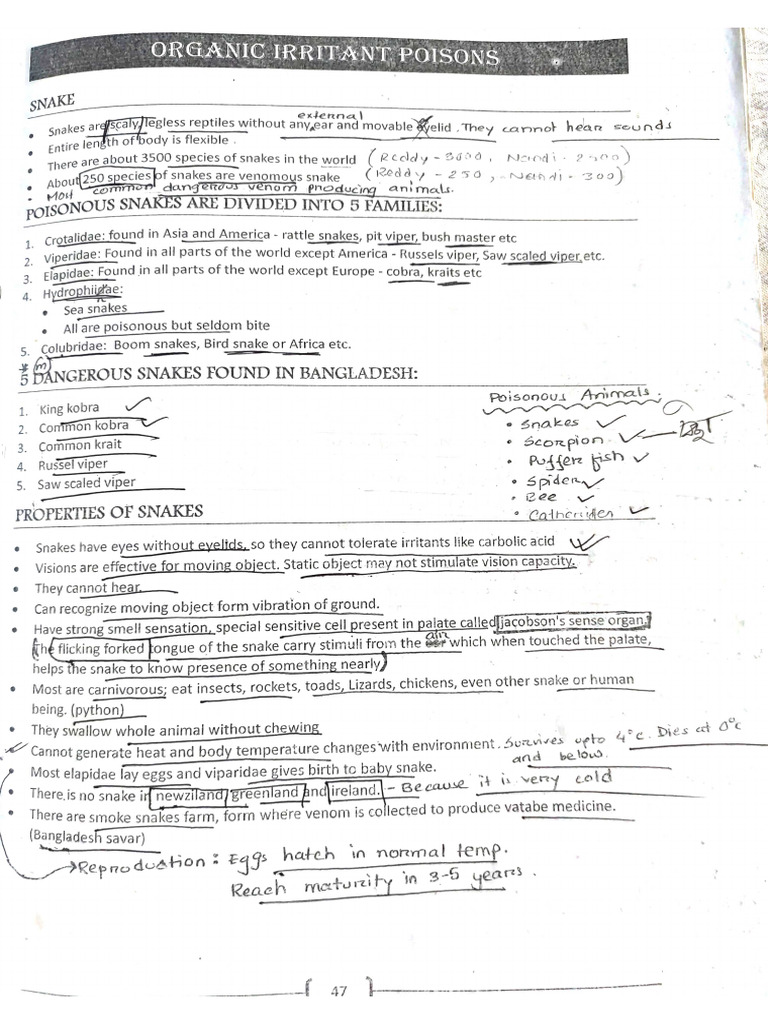 ORGANIC IRRITANT POISONS
SNAKE
• Snakes are scaly, legless reptiles without any external ear and movable eyelid. They cannot hear sounds
• Entire length of body is flexible.
• There are about 3500 species of snakes in the world (Reddy-3000, Nandi-2500)
• About 250 species of snakes are venomous snake (Reddy-250, Nandi-300)
• Most common dangerous venom producing animals.
POISONOUS SNAKES ARE DIVIDED INTO 5 FAMILIES:
1. Crotalidae: found in Asia and America - rattle snakes, pit viper, bush master etc
2. Viperidae: Found in all parts of the world except America - Russels viper, Saw scaled viper etc.
3. Elapidae: Found in all parts of the world except Europe - cobra, kraits etc
4. Hydrophiidae:
• Sea snakes
• All are poisonous but seldom bite
5. Colubridae: Boom snakes, Bird snake or Africa etc.
* (m)
5 DANGEROUS SNAKES FOUND IN BANGLADESH:
1. King kobra
2. Common kobra
3. Common krait
4. Russel viper
5. Saw scaled viper
Poisonous Animals:
• Snakes
• Scorpion
• Puffer fish
• Spider
• Bee
PROPERTIES OF SNAKES
• Snakes have eyes without eyelids, so they cannot tolerate irritants like carbolic acid
• Visions are effective for moving object. Static object may not stimulate vision capacity.
• They cannot hear.
• Can recognize moving object form vibration of ground.
• Have strong smell sensation, special sensitive cell present in palate called jacobson's sense organ.
(The flicking forked tongue of the snake carry stimuli from the air which when touched the palate,
helps the snake to know presence of something nearly)
• Most are carnivorous; eat insects, rockets, toads, Lizards, chickens, even other snake or human
being. (python)
• They swallow whole animal without chewing
• Cannot generate heat and body temperature changes with environment. Survives upto 4°c. Dies at 0°c
and below.
• Most elapidae lay eggs and viparidae gives birth to baby snake.
• There is no snake in newziland, greenland and ireland. - Because it is very cold
• There are smoke snakes farm, form where venom is collected to produce vatabe medicine.
(Bangladesh savar)
Reproduction: Eggs hatch in normal temp.
Reach maturity in 3-5 years.
47